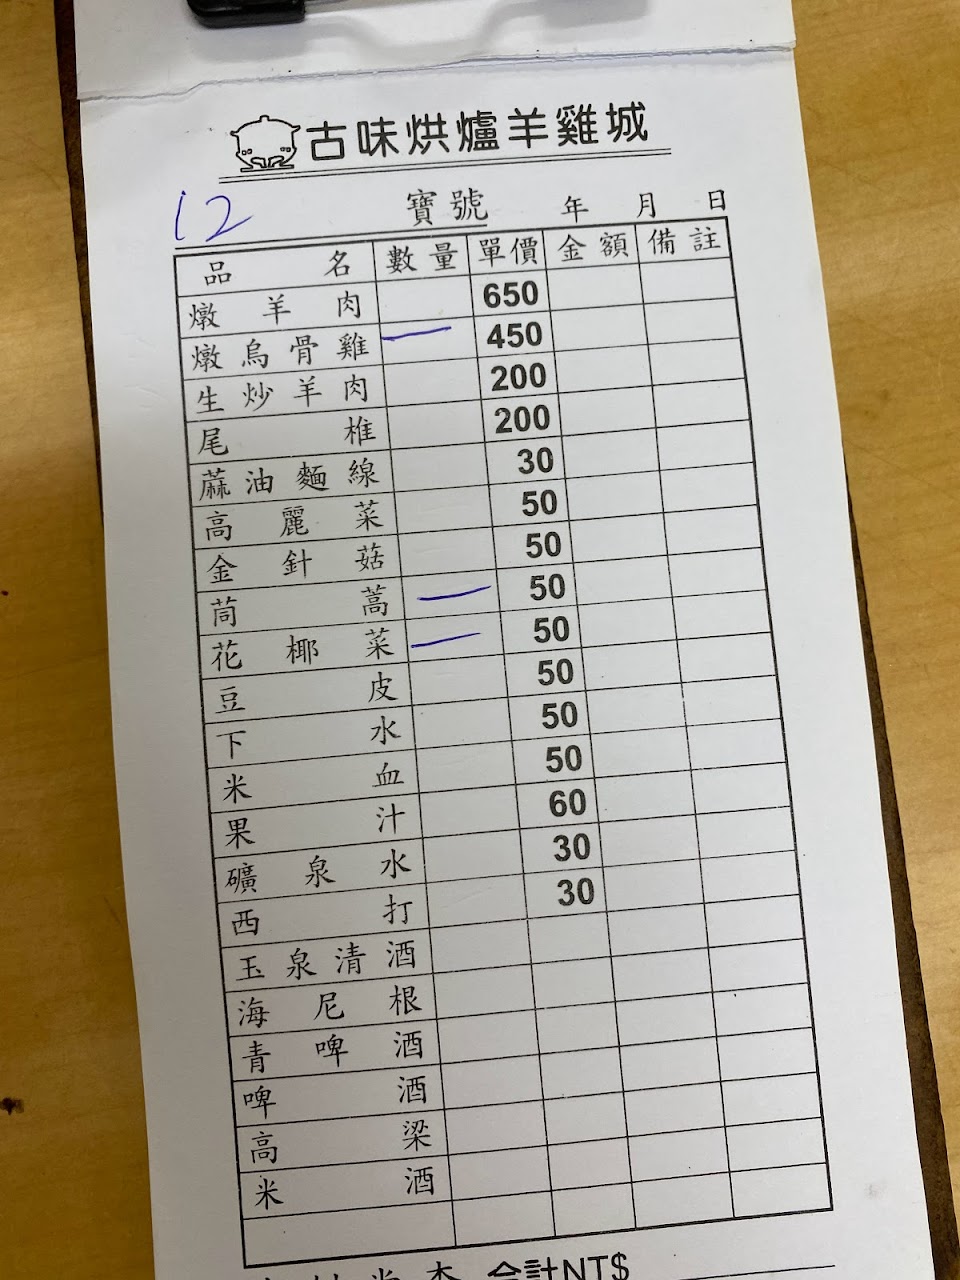 古味烘爐羊雞城
12 寶號 年 月 日
品名 數量 單價 金額 備註
燉羊肉 650
燉烏骨雞 一 450
生炒羊肉 200
尾椎 200
蔴油麵線 30
高麗菜 50
金針菇 50
茼蒿 一 50
花椰菜 一 50
豆皮 50
下水 50
米血 50
果汁 60
礦泉水 30
西打 30
玉泉清酒
海尼根
青啤酒
啤酒
高梁
米酒
合計NT$